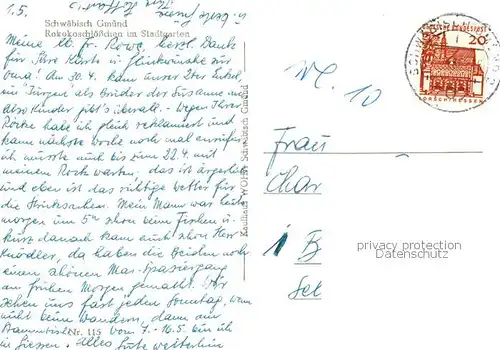 1.5.
Schwäbisch Gmünd
Rokokoschlößchen im Stadtgarten
Meine lb. Fr. Rowe, herzl. Dank
für Ihre Karte u. Glückwünsche zur
Oma! Am 30.4. kam unser 2ter Enkel,
ein "Jürgen" als Bruder der Susanne an,
also Kinder gibt's überall. Wegen Ihrer
Röcke habe ich gleich reklamiert und
kam nächste Woche noch mal anrufen
ich musste auch bis zum 22.4. mit
meinem Rock warten, das ist ärgerlich
und eben ist das richtige Wetter für
die Stricksachen. Mein Mann war heute
morgen um 5 schon beim Fischen u.
kurz danach kam auch schon Herr
Knödler, da haben die Beiden noch
einen schönen Mai-Spaziergang
am frühen Morgen gemacht. Wir
sehen uns fast jeden Sonntag, wenn
wir beim Wandern, dann am
Stammtisch. Vom 7.-16.5. bin ich
in Giessen. Alles Gute weiterhin
Nr. 115
Kaufhaus WOHA Schwäbisch Gmünd
DEUTSCHE BUNDESPOST
20
LORSCH/HESSEN
Frau
Char
B
Gel
privacy protection
Datenschutz